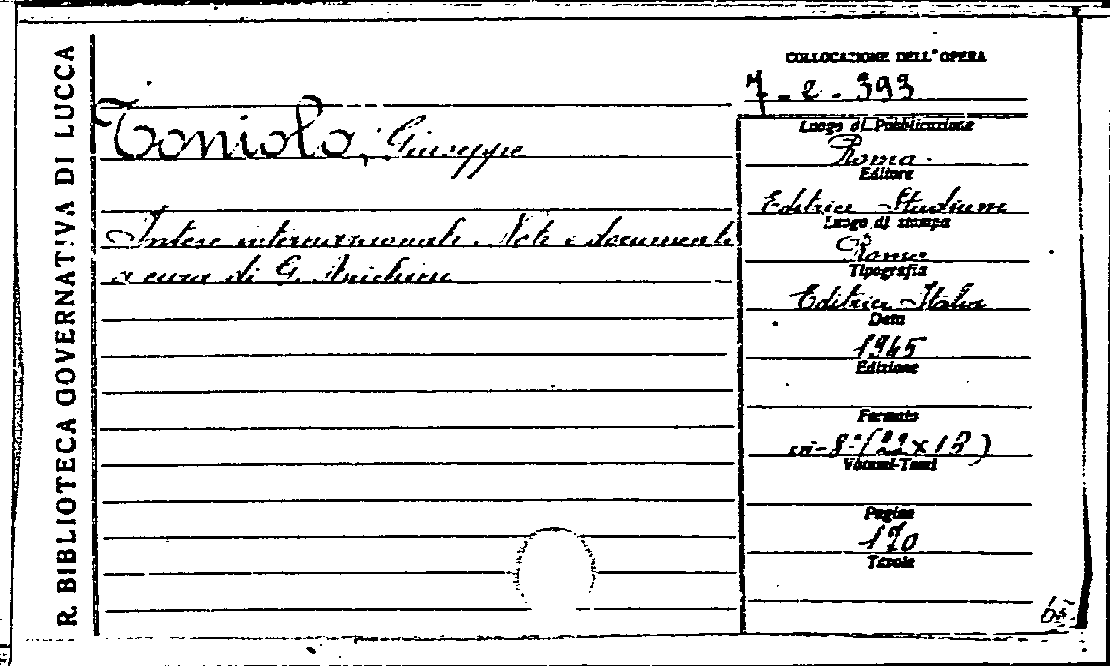 R. BIBLIOTECA GOVERNATIVA DI LUCCA
COLLOCAZIONE DELL'OPERA
7 - 2 - 393
Toniolo, Giuseppe
Intese internazionali. Note e documenti
a cura di G. Anichini
Luogo di Pubblicazione
Roma.
Editore
Editrice Studium
Luogo di stampa
Roma
Tipografia
Editrice Italia
Data
1945
Edizione
Formato
in-8° (22 x 13)
Volumi-Tomi
Pagine
170
Tavole